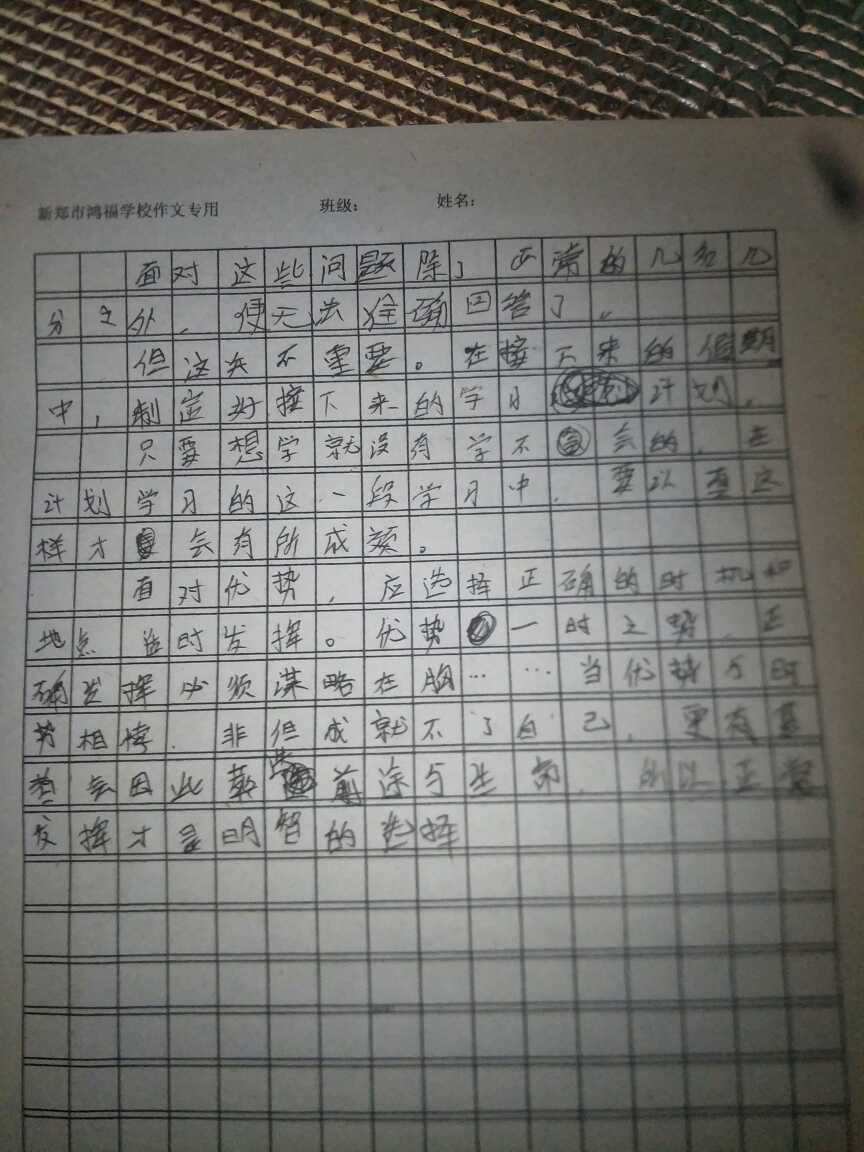 新郑市鸿福学校作文专用 班级： 姓名：
面对这些问题除了正常的几名几
分之外，便无法准确回答了。
但这并不重要。在接下来的假期
中，制定好接下来的学习计划，
只要想学就没有学不会的，在
计划学习的这一段学习中，要认真这
样才会有所成绩。
面对优势，应选择正确的时机和
地点适时发挥。优势一时之势，正
确发挥必须谋略在胸……当优势与时
势相悖，非但成就不了自己，更有甚
者会因此葬前途与生命，所以正常
发挥才是明智的选择